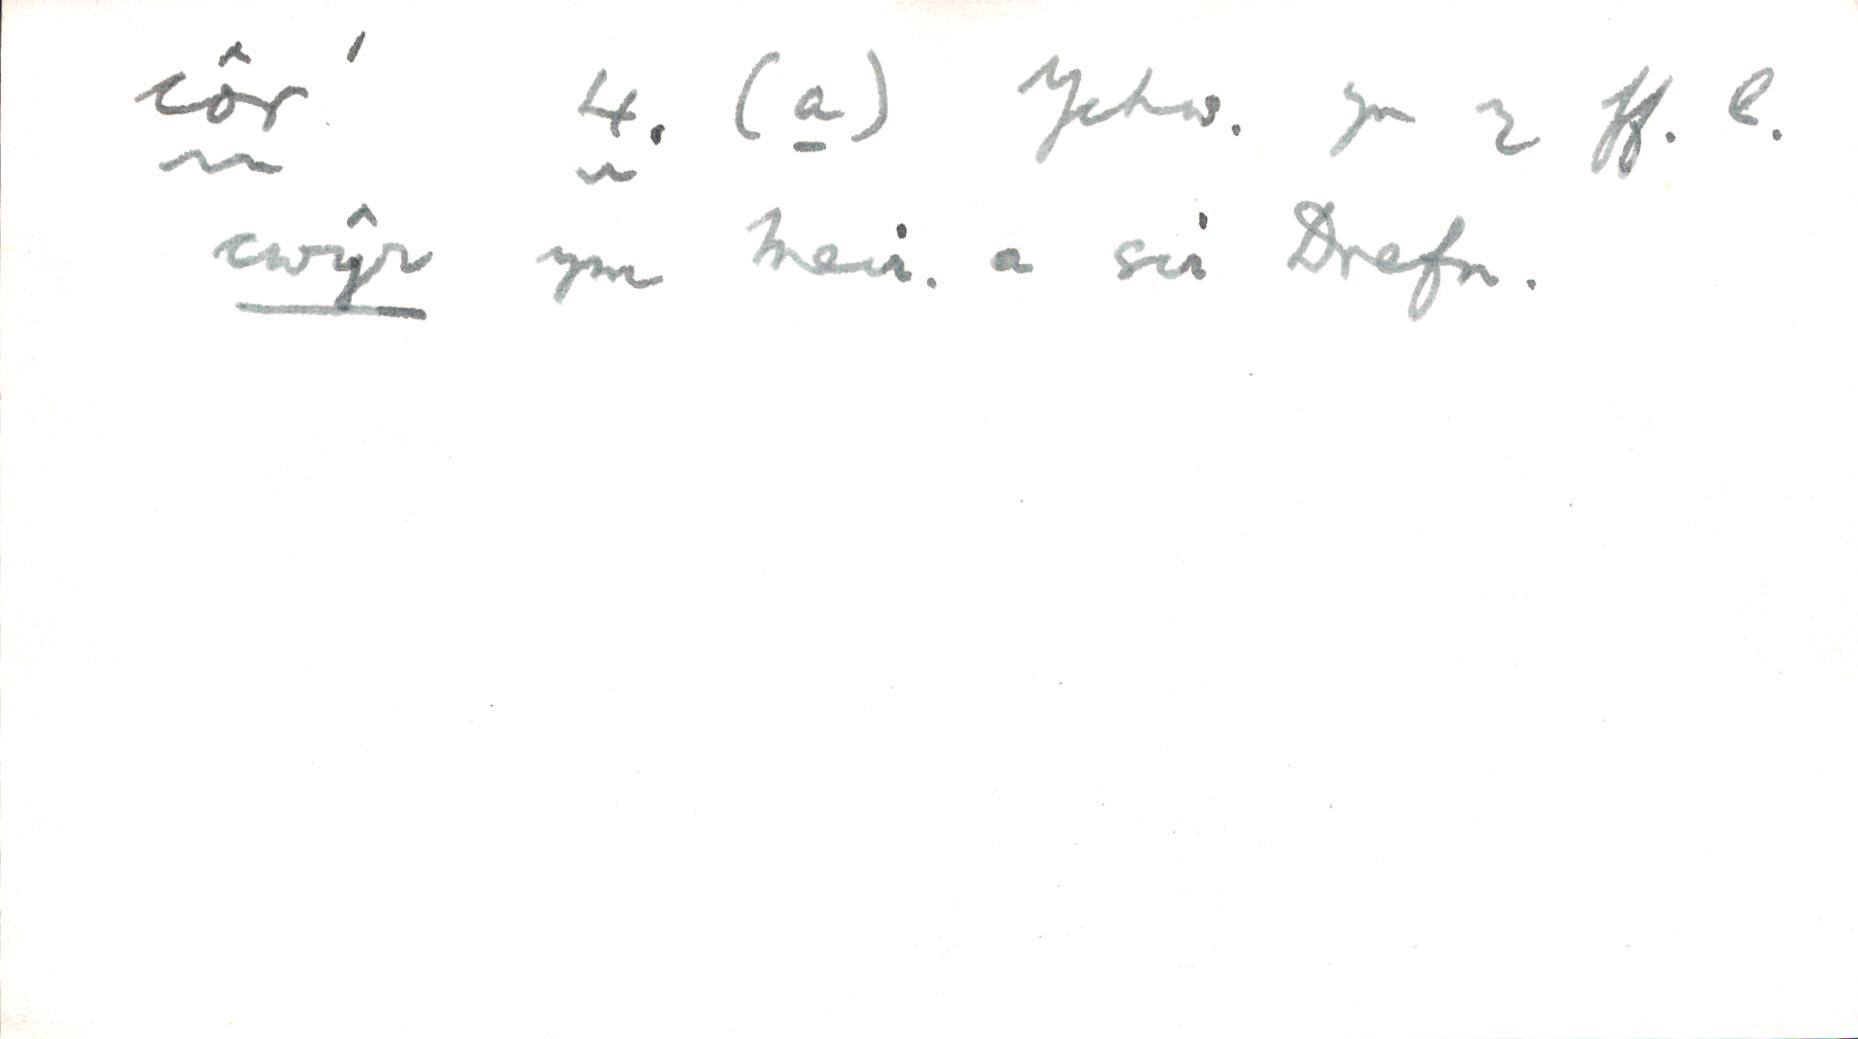 côr¹ 4. (a) Ychw. yn y ff. l.
cwŷr ym Meir. a sir Drefn.